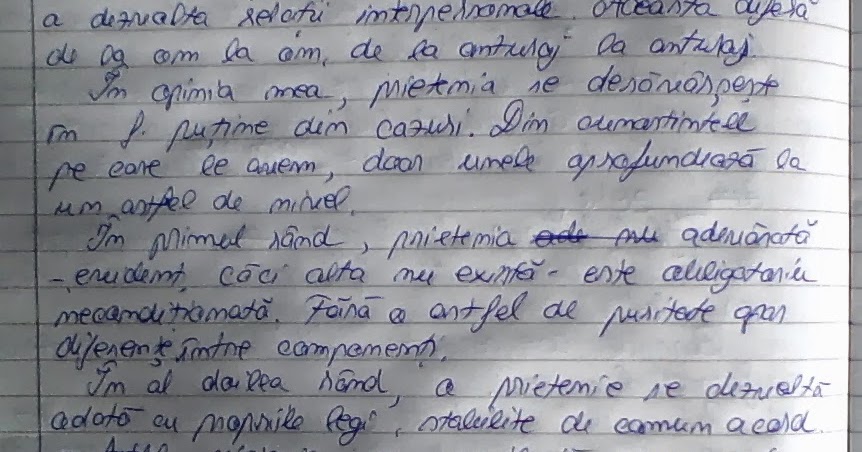 a dezvolta relații interpersonale. Aceasta diferă
de la om la om, de la anturaj la anturaj.
În opinia mea, prietenia se desăvârșește
în f. puține din cazuri. Din cunoștințele
pe care le avem, doar unele aprofundează la
un astfel de nivel.
În primul rând, prietenia adevărată
- evident, căci alta nu există - este obligatoriu
necondiționată. Fără o astfel de puritate apar
diferențe între componenți.
În al doilea rând, o prietenie se dezvoltă
odată cu propriile legi, stabilite de comun acord.